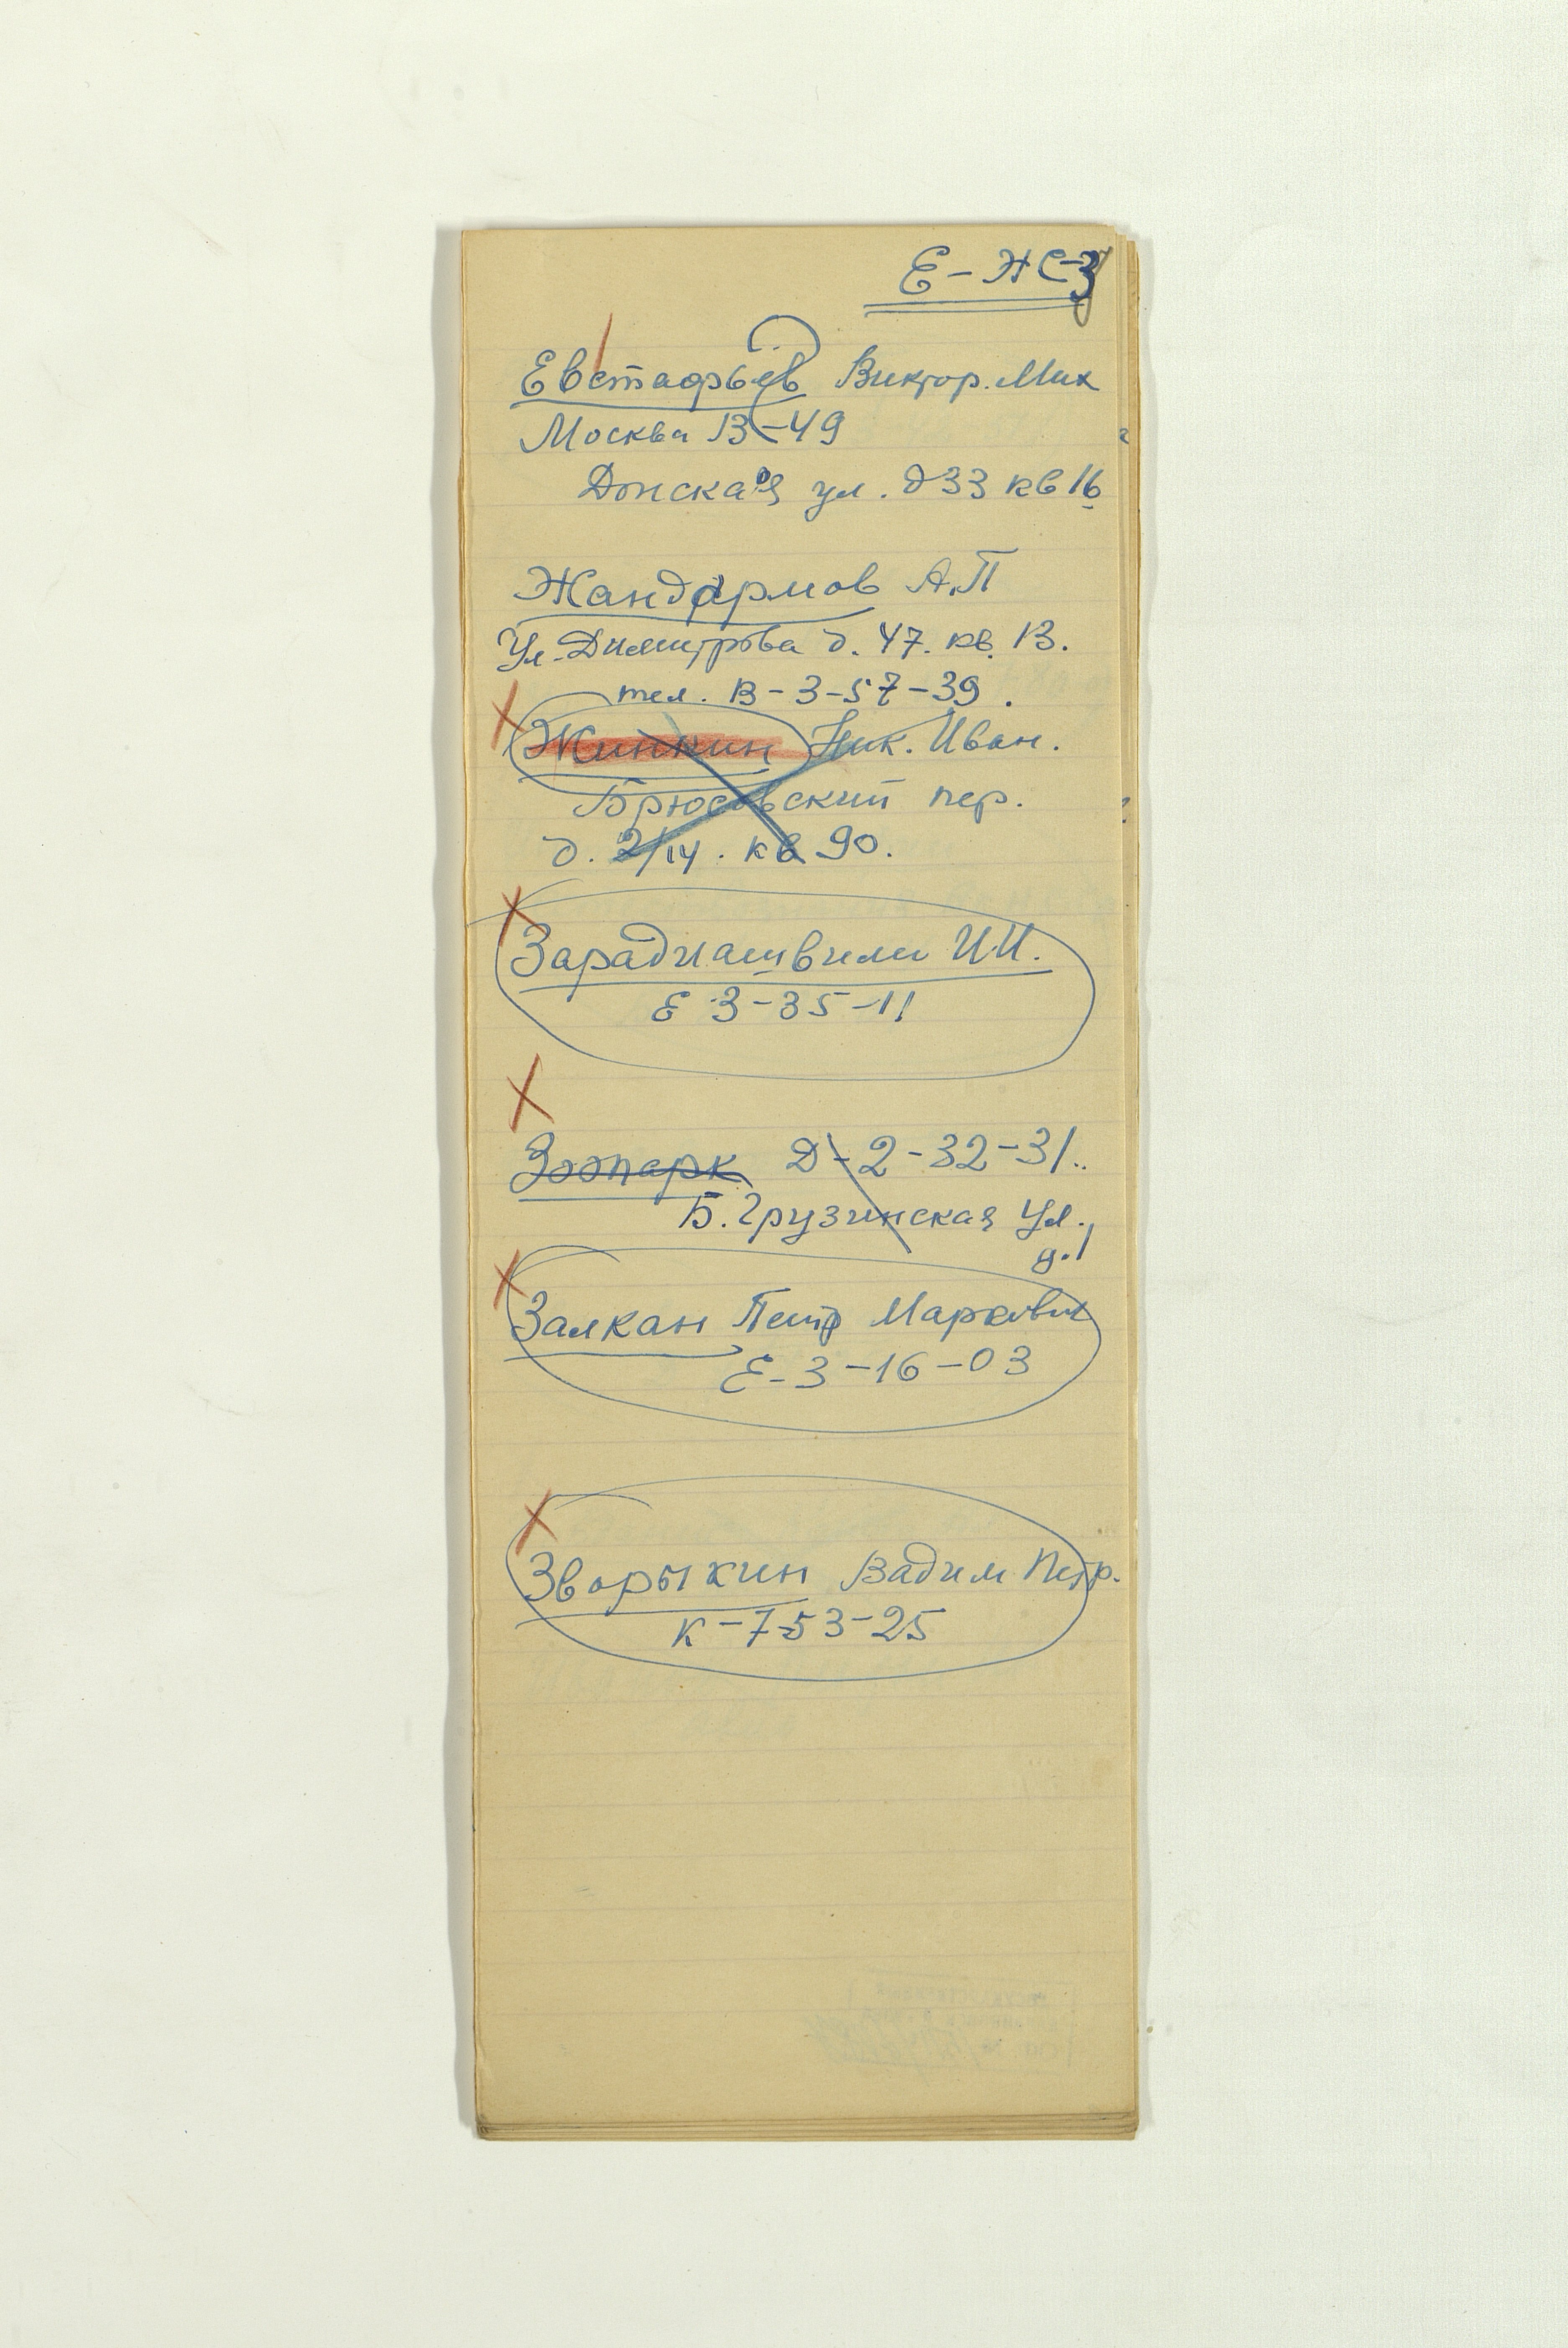 Е-Ж-З
Евстафьев Виктор. Мих
Москва В-49
Донская ул. д 33 кв 16
Жандармов А.П
Ул. Димитрова д. 47. кв. 13.
тел. В-3-57-39.
Жинкин Ник. Иван.
Брюсовский пер.
д. 2/14. кв 90.
Зарадиашвили И.И.
Е 3-35-11
Зоопарк Д-2-32-31..
Б. Грузинская ул.
д.1
Залкан Петр Маркович
Е-3-16-03
Зворыкин Вадим Петр.
К-7-53-25